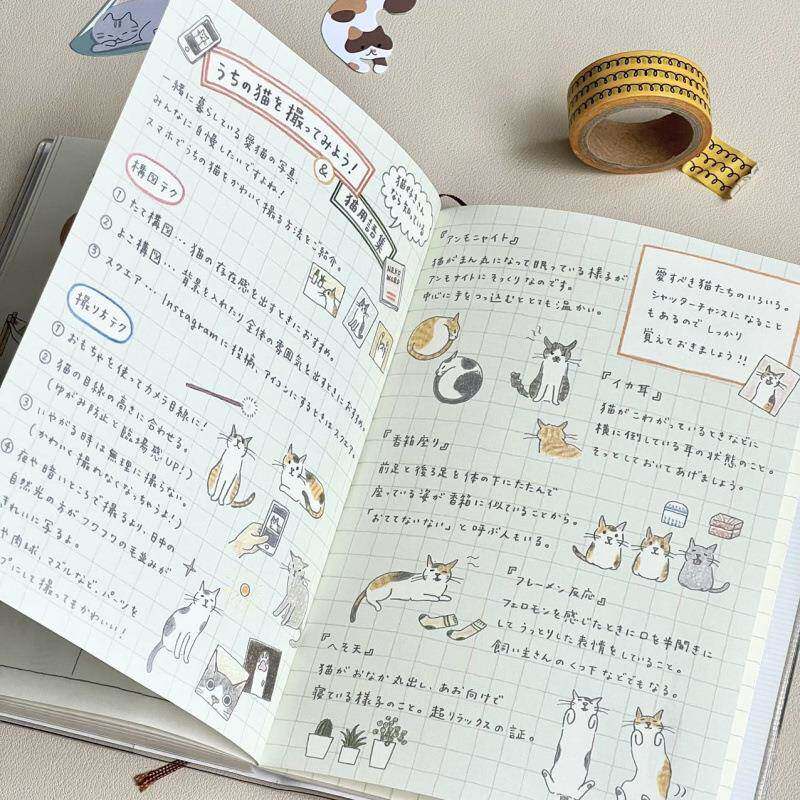 うちの猫を撮ってみよう!
&
猫用語集
猫好きさん
なら知っている
一緒に暮らしている愛猫の写真、
みんなに自慢したいですよね!
スマホでうちの猫をかわいく撮る方法をご紹介。
構図テク
① たて構図… 猫の存在感を出すときにおすすめ。
② よこ構図… 背景を入れたり全体の雰囲気を出すときにおすすめ。
③ スクエア… Instagramに投稿、アイコンにするときはスクエア。
撮り方テク
① おもちゃを使ってカメラ目線に!
② 猫の目線の高さに合わせる。
(ゆがみ防止と臨場感UP!)
③ いやがる時は無理に撮らない。
(かわいく撮れなくなっちゃうよ!)
④ 夜や暗いところで撮るより、日中の
自然光の方がフワフワの毛並みが
きれいに写るよ。
や肉球、マズルなど、パーツを
プにして撮ってもかわいい!
『アンモニャイト』
猫がまん丸になって眠っている様子が
アンモナイトにそっくりなのです。
中心に手をつっ込むととても温かい。
愛すべき猫たちのいろいろ。
シャッターチャンスになること
もあるのでしっかり
覚えておきましょう!!
『イカ耳』
猫がこわがっているときなどに
横に倒している耳の状態のこと。
そっとしておいてあげましょう。
『香箱座り』
前足と後ろ足を体の下にたたんで
座っている姿が香箱に似ていることから。
「おててないない」と呼ぶ人もいる。
『フレーメン反応』
フェロモンを感じたときに口を半開きに
してうっとりした表情をしていること。
飼い主さんのくつ下などでもなる。
『へそ天』
猫がおなか丸出し、あお向けで
寝ている様子のこと。超リラックスの証。